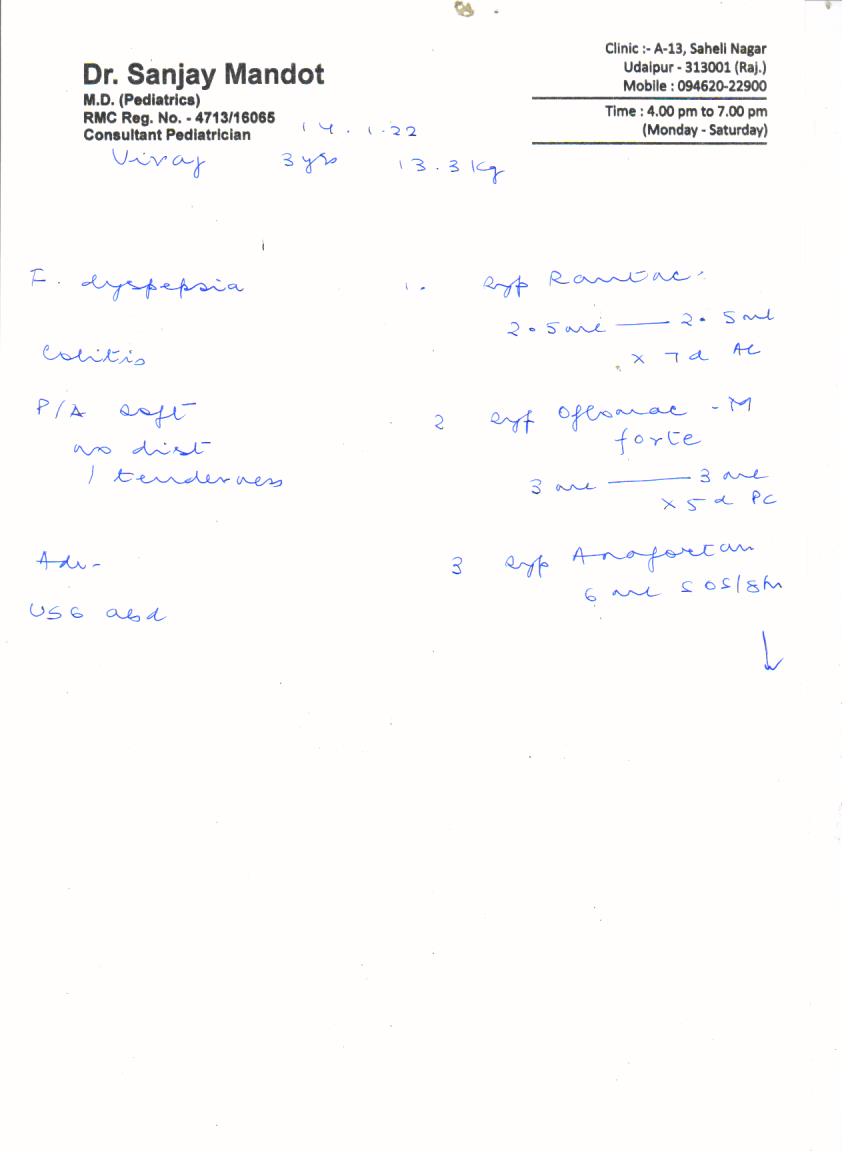 Dr. Sanjay Mandot
M.D. (Pediatrics)
RMC Reg. No. - 4713/16065
Consultant Pediatrician
Clinic :- A-13, Saheli Nagar
Udaipur - 313001 (Raj.)
Mobile : 094620-22900
Time : 4.00 pm to 7.00 pm
(Monday - Saturday)
14.1.22
Viraj 3 yrs 13.3 Kg
F. dyspepsia
Colitis
P/A soft
no dist
/ tenderness
Adv-
USG abd
1. syp Rantac
2.5 ml — 2.5 ml
x 7 d AC
2 syp Oflomac - M
forte
3 ml — 3 ml
x 5 d PC
3 syp Anafortan
6 ml SOS/8h